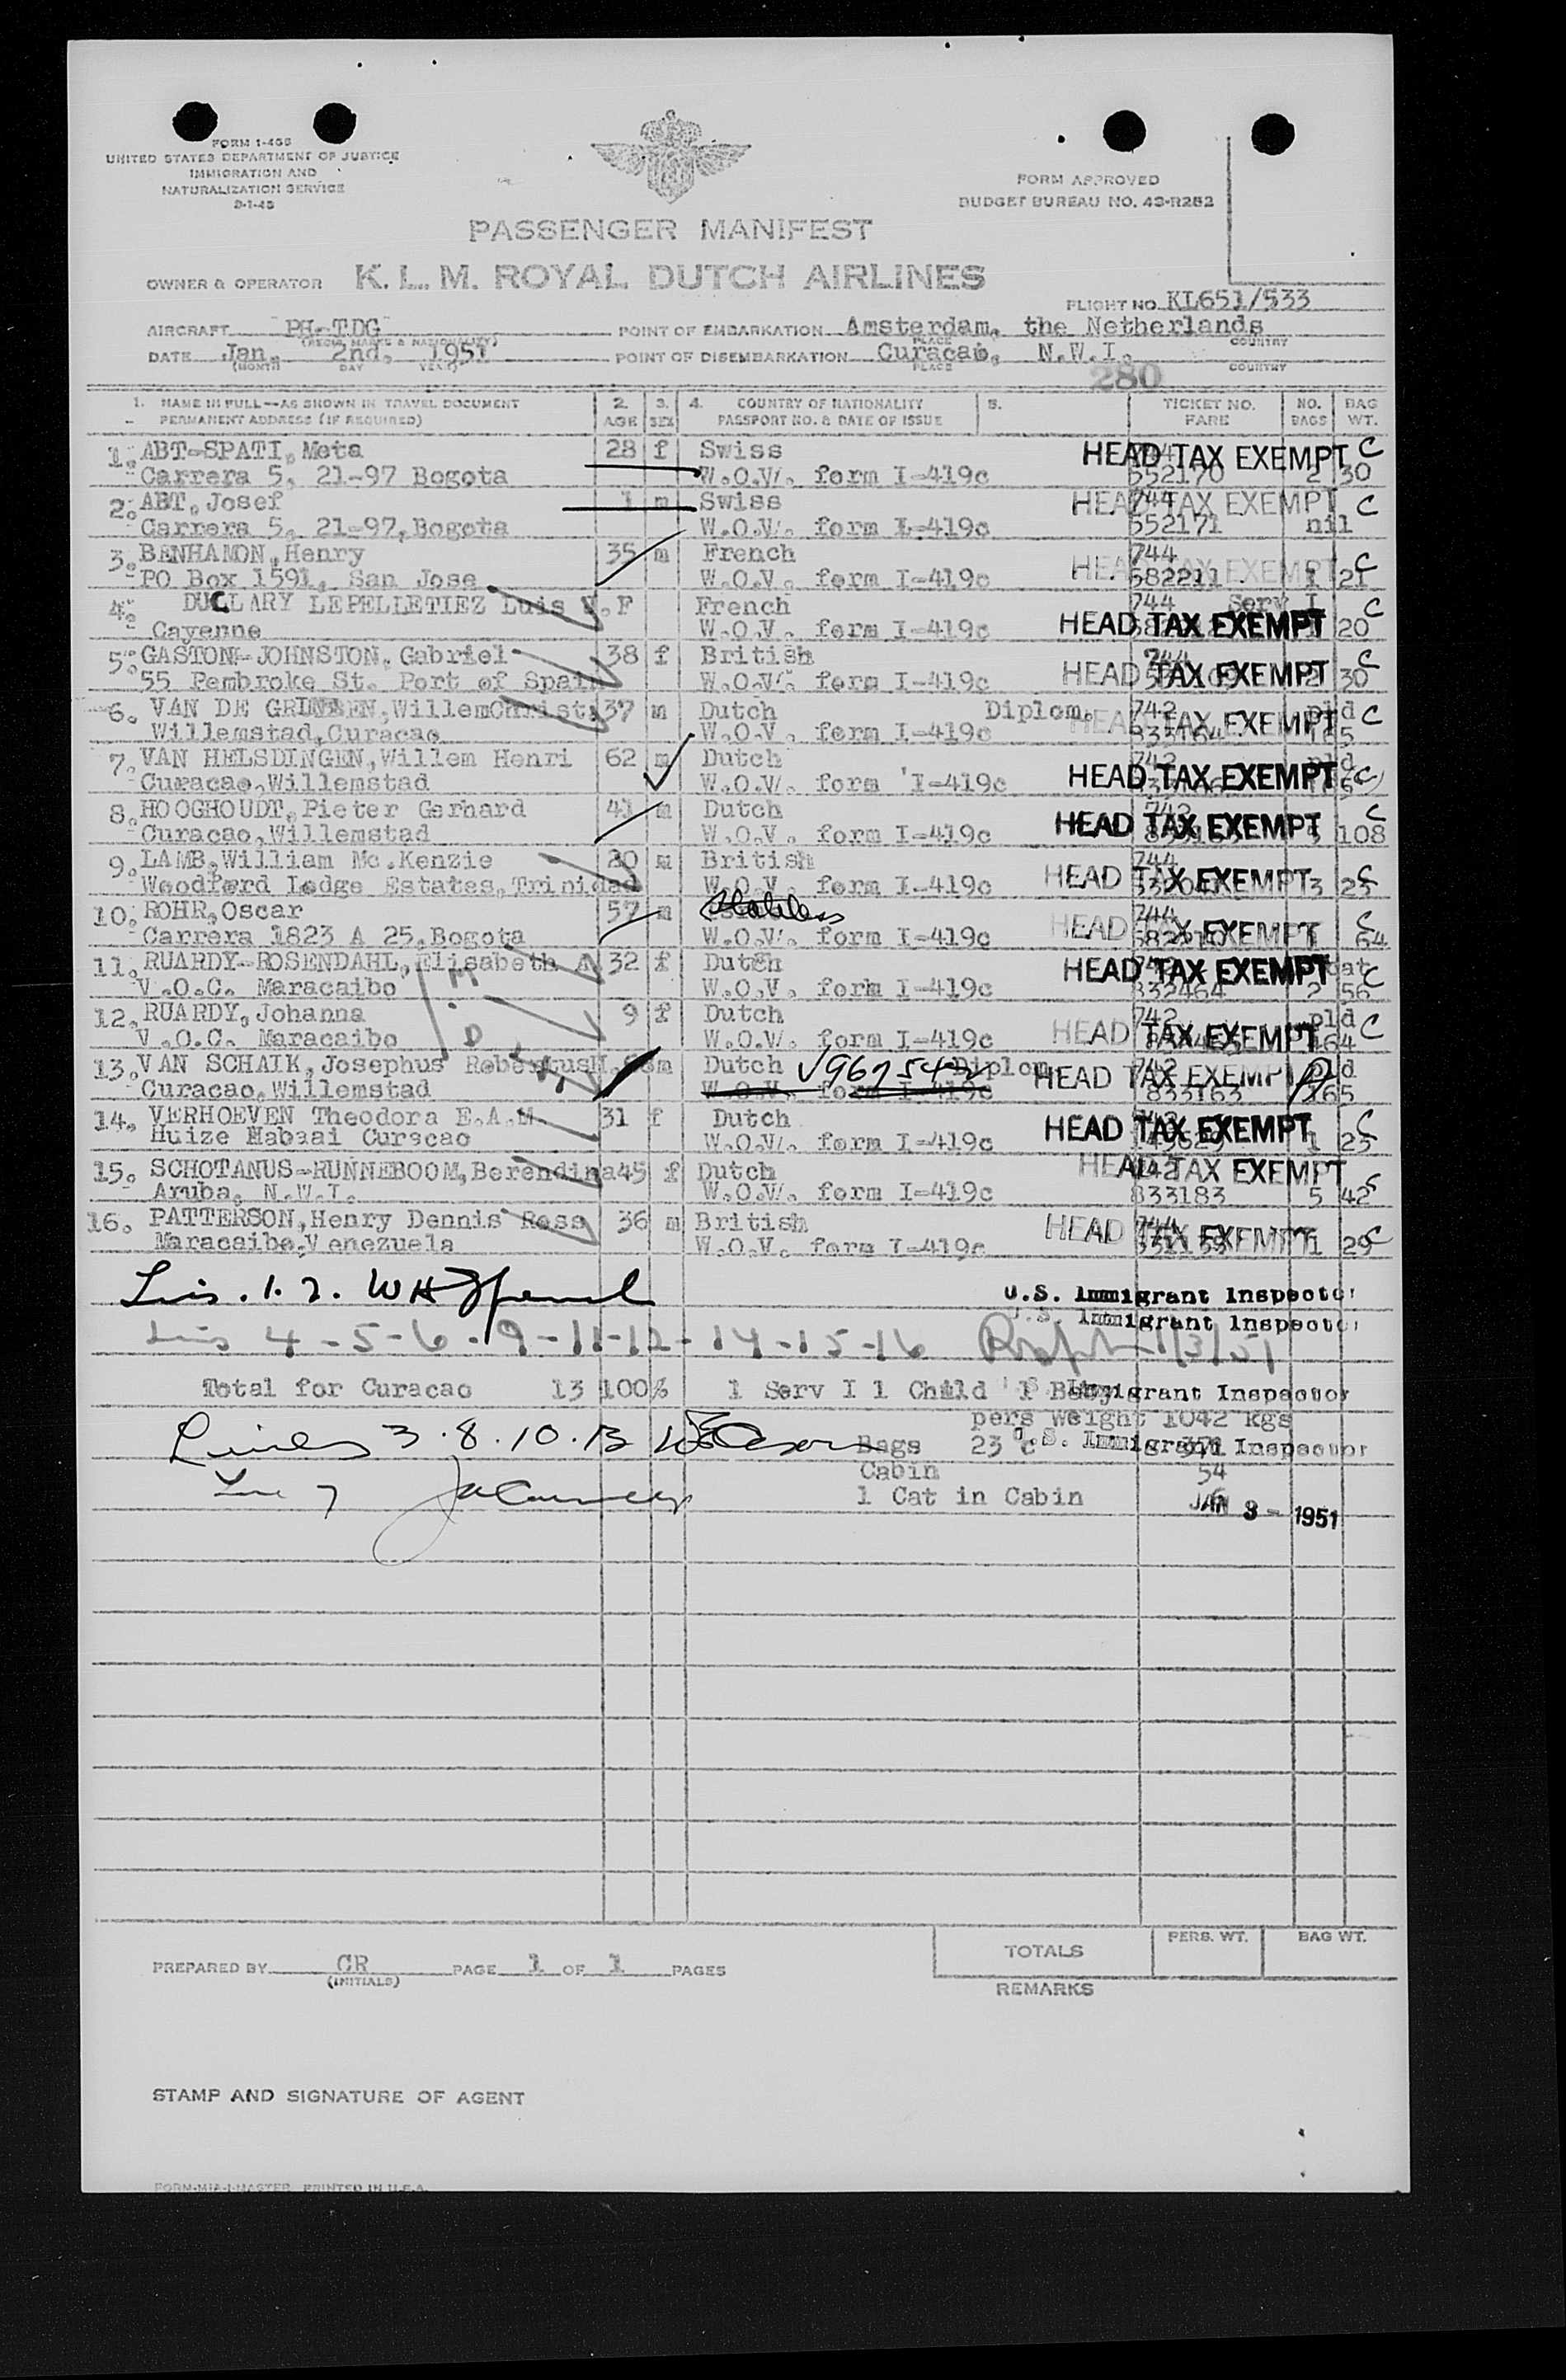 FORM I-466
UNITED STATES DEPARTMENT OF JUSTICE
IMMIGRATION AND
NATURALIZATION SERVICE
FORM APPROVED
BUDGET BUREAU NO. 43-R252
PASSENGER MANIFEST
OWNER & OPERATOR K. L. M. ROYAL DUTCH AIRLINES
FLIGHT NO. KL651/533
AIRCRAFT PH-TDG POINT OF EMBARKATION Amsterdam, the Netherlands
(REGIS. MARKS & NATIONALITY) PLACE COUNTRY
DATE Jan. 2nd, 1951 POINT OF DISEMBARKATION Curacao, N.W.I.
(MONTH) DAY YEAR) PLACE COUNTRY
280
1. NAME IN FULL--AS SHOWN IN TRAVEL DOCUMENT 2. 3. 4. COUNTRY OF NATIONALITY 5. TICKET NO. NO. BAG
PERMANENT ADDRESS (IF REQUIRED) AGE SEX PASSPORT NO. & DATE OF ISSUE FARE BAGS WT.
1. ABT-SPATI, Meta 28 f Swiss HEAD TAX EXEMPT C
Carrera 5, 21-97 Bogota W.O.V. form I-419c 552170 2 30
2. ABT, Josef 1 m Swiss 744 HEAD TAX EXEMPT C
Carrera 5, 21-97, Bogota W.O.V. form I-419c 552171 nil
3. BENHAMON, Henry 35 m French 744 HEAD TAX EXEMPT C
PO Box 1591, San Jose W.O.V. form I-419c 582211 1 21
4. DUCLARY LEPELLETIEZ Luis V.F French 744 Serv I C
Cayenne W.O.V. form I-419c HEAD TAX EXEMPT 20
5. GASTON-JOHNSTON, Gabriel 38 f British 744 C
55 Pembroke St. Port of Spain W.O.V. form I-419c HEAD TAX EXEMPT 2 30
6. VAN DE GRUNSEN, Willem Christ. 37 m Dutch Diplom. 742 pld HEAD TAX EXEMPT C
Willemstad, Curacao W.O.V. form I-419c 833164 165
7. VAN HELSDINGEN, Willem Henri 62 m Dutch 742 pld
Curacao, Willemstad W.O.V. form I-419c HEAD TAX EXEMPT C
8. HOOGHOUDT, Pieter Gerhard 41 m Dutch 742 C
Curacao, Willemstad W.O.V. form I-419c HEAD TAX EXEMPT 5 108
9. LAMB, William Mc.Kenzie 20 m British 744
Woodford Lodge Estates, Trinidad W.O.V. form I-419c HEAD TAX EXEMPT 3 23 C
10. ROHR, Oscar 57 m Stateless 744 C
Carrera 1823 A 25, Bogota W.O.V. form I-419c HEAD TAX EXEMPT 1 64
11. RUARDY-ROSENDAHL, Elisabeth A. 32 f Dutch HEAD TAX EXEMPT cat C
V.O.C. Maracaibo W.O.V. form I-419c 832464 2 56
12. RUARDY, Johanna 9 f Dutch 742 pld C
V.O.C. Maracaibo W.O.V. form I-419c HEAD TAX EXEMPT 464
13. VAN SCHAIK, Josephus Robertus m Dutch V967542 Diplom. 742 HEAD TAX EXEMPT pld
Curacao, Willemstad W.O.V. form I-419c 833163 165
14. VERHOEVEN Theodora E.A.M. 31 f Dutch 742 HEAD TAX EXEMPT C
Huize Habaai Curacao W.O.V. form I-419c 1 23
15. SCHOTANUS-RUNNEBOOM, Berendina 45 f Dutch 742 HEAD TAX EXEMPT
Aruba, N.W.I. W.O.V. form I-419c 833183 5 42 C
16. PATTERSON, Henry Dennis Ross 36 m British 744 HEAD TAX EXEMPT
Maracaibo, Venezuela W.O.V. form I-419c 331159 1 29 C
Lin. 1. 2.
U.S. Immigrant Inspector
U.S. Immigrant Inspector
Lin 4-5-6-9-11-12-14-15-16 1/3/51
Total for Curacao 13 100% 1 Serv I 1 Child 1 Baby
U.S. Immigrant Inspector
pers weight 1042 kgs
Lines 3.8.10.13 Bags 23 c 371
U.S. Immigrant Inspector
Cabin 54
Line 7
1 Cat in Cabin
JAN 3 - 1951
TOTALS PERS. WT. BAG WT.
PREPARED BY CR PAGE 1 OF 1 PAGES
(INITIALS)
REMARKS
STAMP AND SIGNATURE OF AGENT
FORM-MIA-I-MASTER PRINTED IN U.S.A.